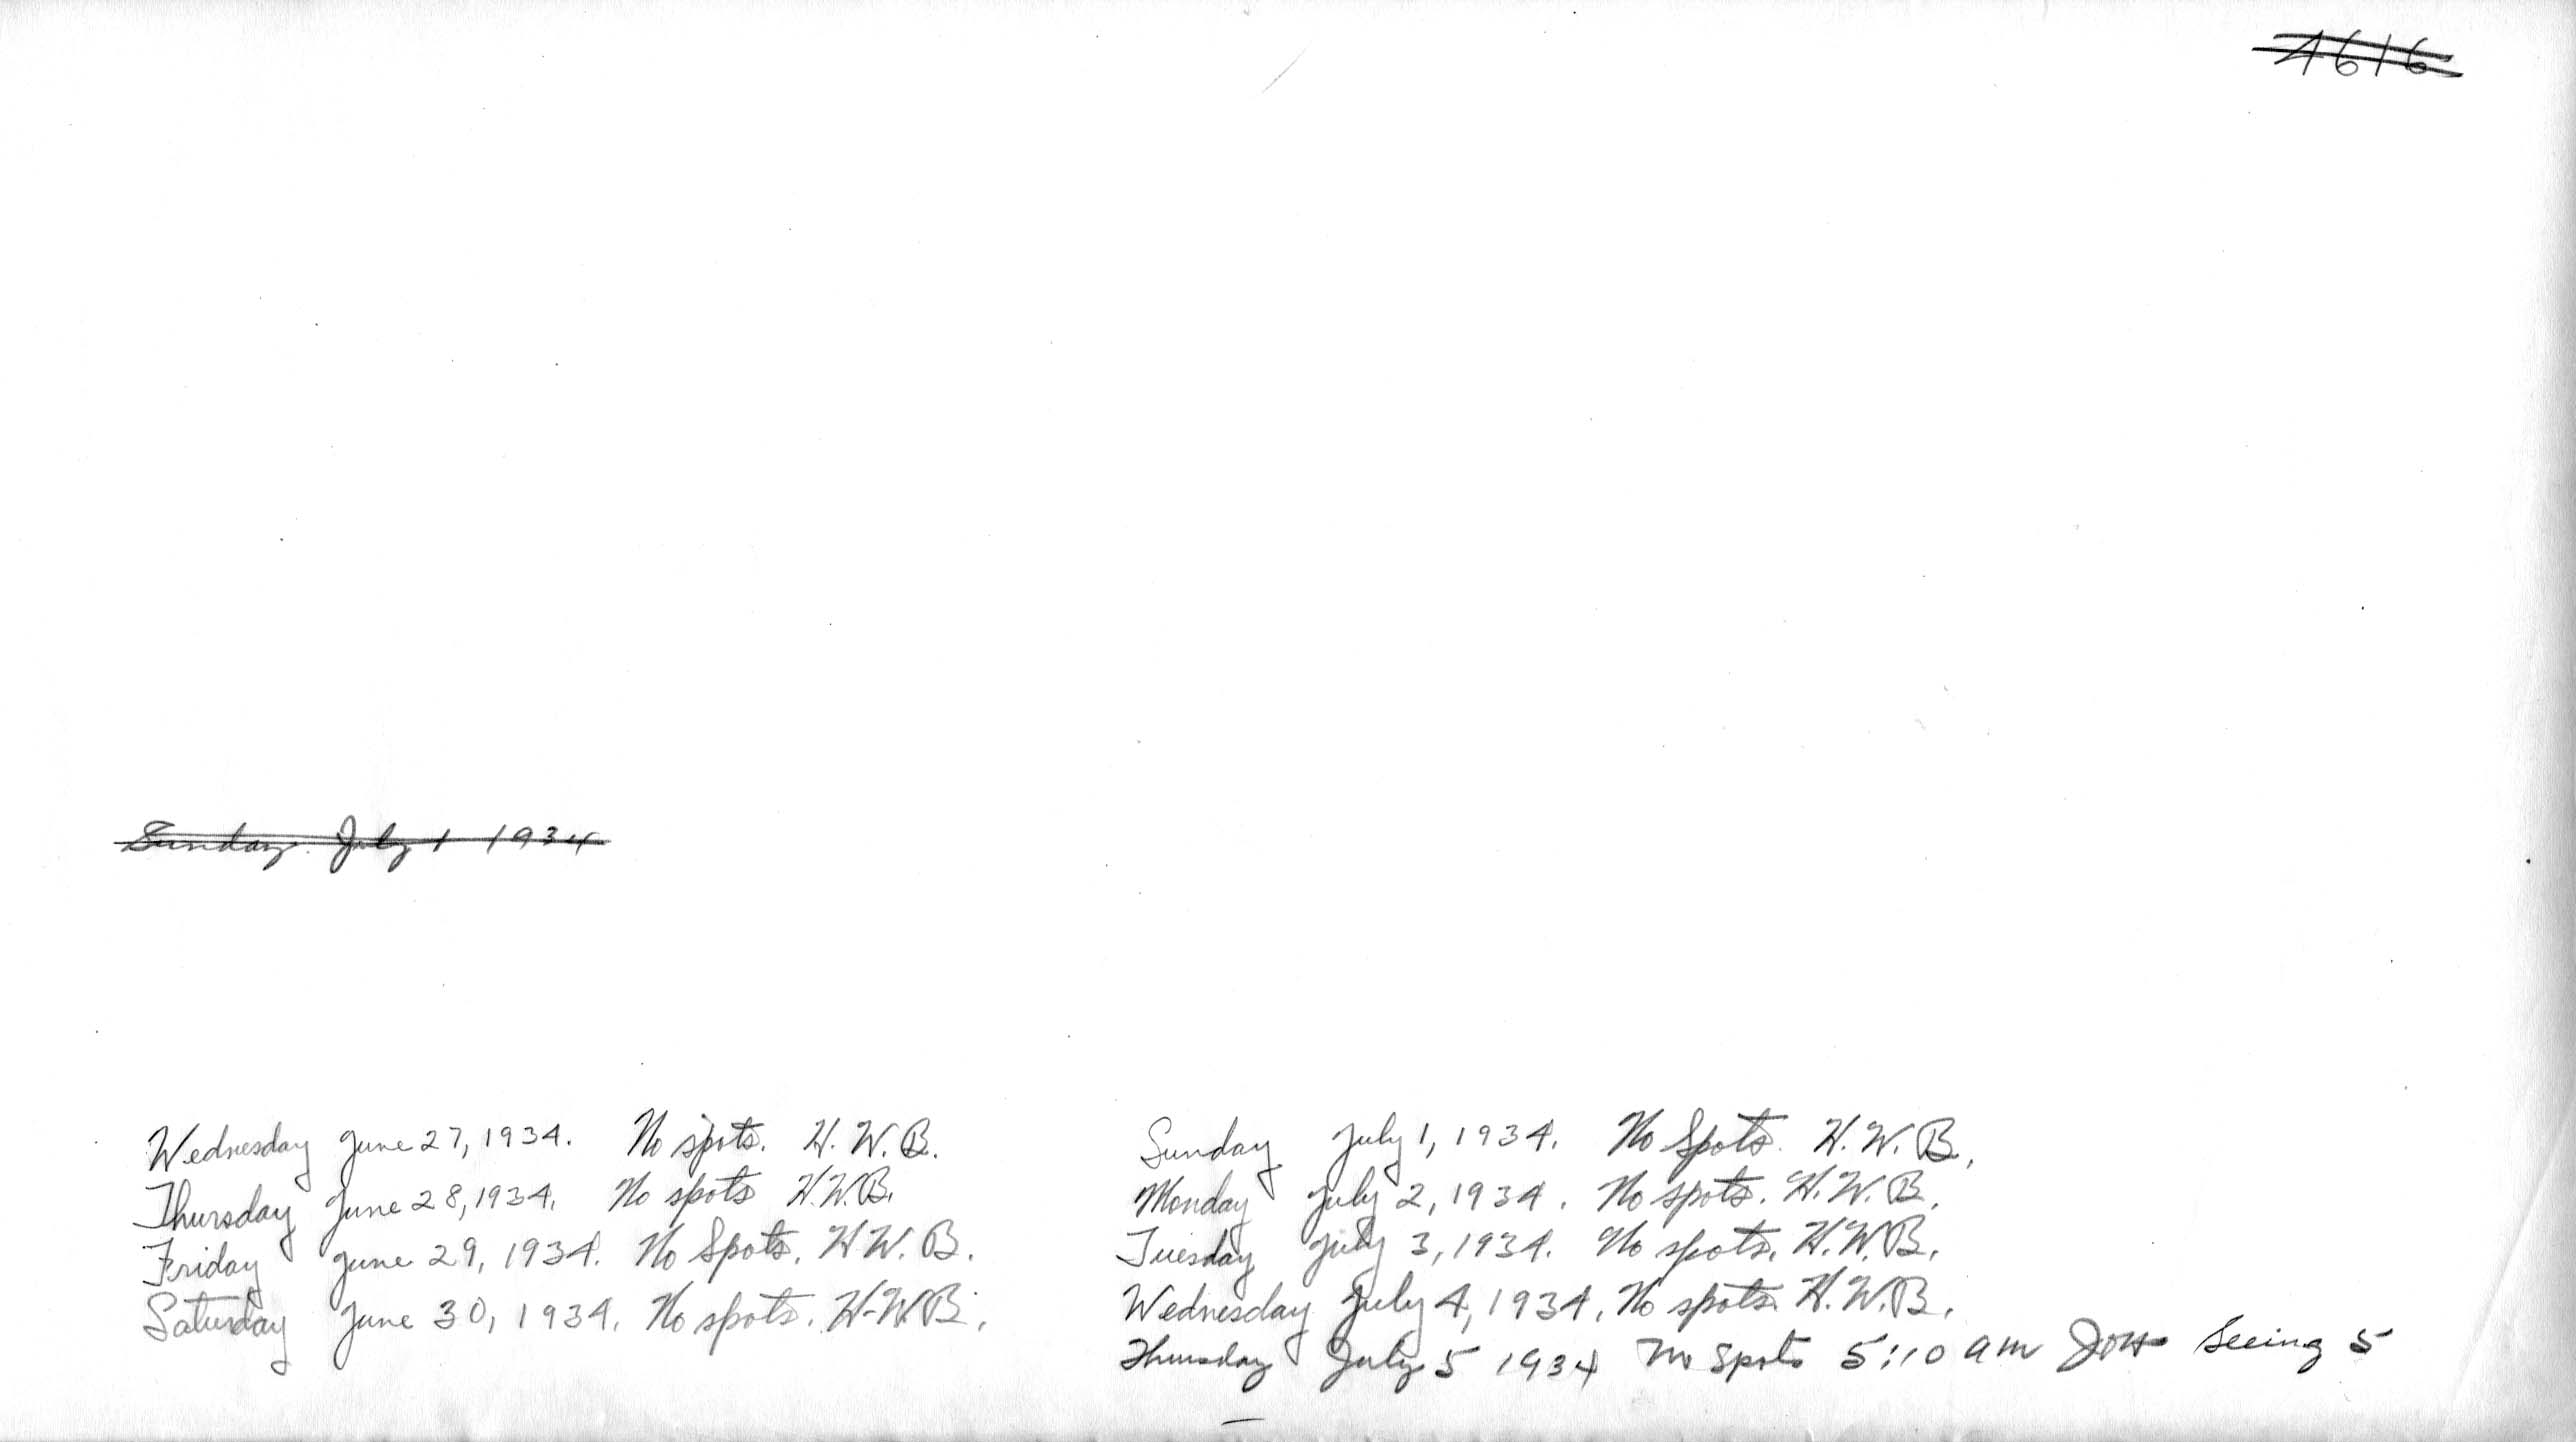 4616
Sunday July 1 1934
Wednesday June 27, 1934. No spots. H. W. B.
Thursday June 28, 1934. No spots H.W.B.
Friday June 29, 1934. No Spots. H W. B.
Saturday June 30, 1934. No spots. H-W.B.
Sunday July 1, 1934. No Spots. H. W. B.
Monday July 2, 1934. No spots. H. W. B.
Tuesday July 3, 1934. No spots. H. W. B.
Wednesday July 4, 1934. No spots. H. W. B.
Thursday July 5 1934 No Spots 5:10 am Seeing 5